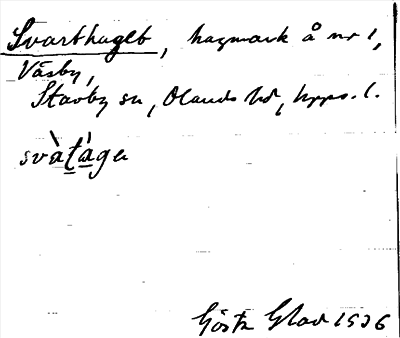 Svarthaget, hagmark å nr 1,
Väsby,
Stavby sn, Olands hd, Upps. l.
svàt̲á̲ge
Gösta Glad 1936